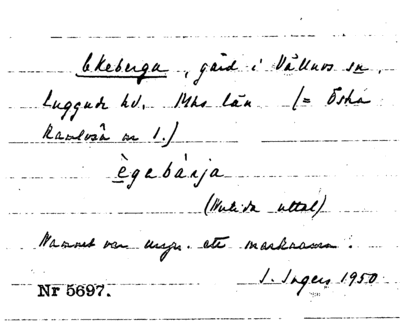 Ekeberga, gård i Välluvs sn,
Luggude hd. Mhs län (= Östra
Ramlösa nr 1.)
ègabárja
(Nutida uttal)
Namnet var urspr. ett marknamn.
I. Ingers 1950
Nr 5697.